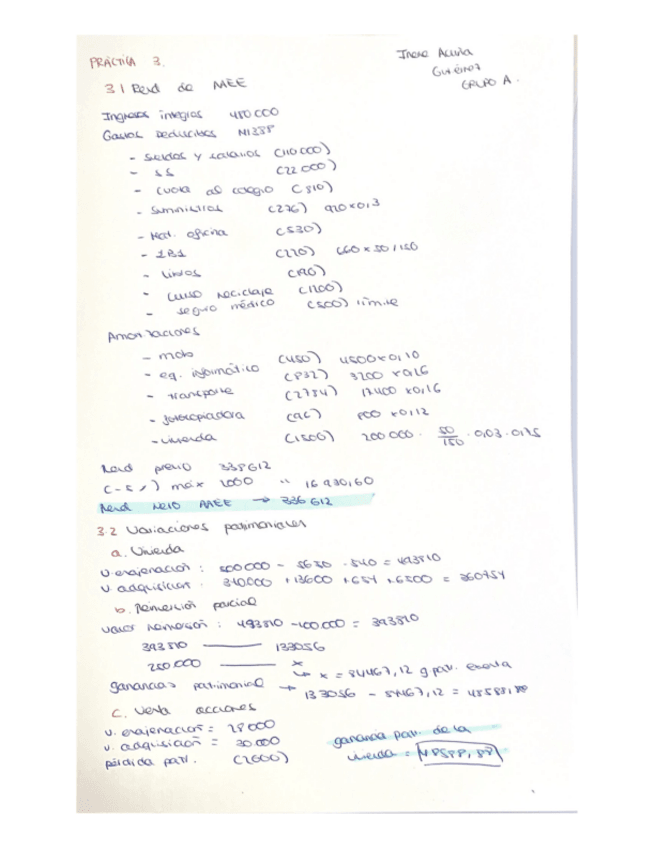 PRÁCTICA 3.
Irene Acuña
Gutiérrez
GRUPO A.
3.1 Rend de AAEE
Ingresos íntegros 480000
Gastos deducibles
- Sueldos y salarios (110000)
- SS (22000)
- Cuota al colegio (810)
- Suministros (276) 920x0,3
- Mat. oficina (530)
- IBI (220) 660 x 50/150
- Libros
- Curso reciclaje (1200)
- Seguro médico (500) límite
Amortizaciones
- moto (450) 4500x0,10
- eq. informático (832) 3200 x0,26
- transporte (2784) 17400 x0,16
- fotocopiadora (96) 800 x0,12
- vivienda (1500) 200.000 · 50/150 · 0,03 · 0,75
Rend previo 338612
(-5%) máx 2000
Rend Neto AAEE → 336612
3.2 Variaciones patrimoniales
a. Vivienda
V. enajenación: 500000 - 5650 - 540 = 493810
V. adquisición: 340000 + 13600 + 654 + 6500 = 360754
b. Reinversión parcial
Valor reinversión: 493810 - 100000 = 393810
393810 —— 133056
250000 —— x
↳ x = 84467,12 g pat. exenta
ganancias patrimonial → 133056 - 84467,12 = 48588,88
c. Venta acciones
V. enajenación = 28000
V. adquisición = 30000
pérdida patr. (2000)
ganancia patr. de la
vivienda = 48588,88